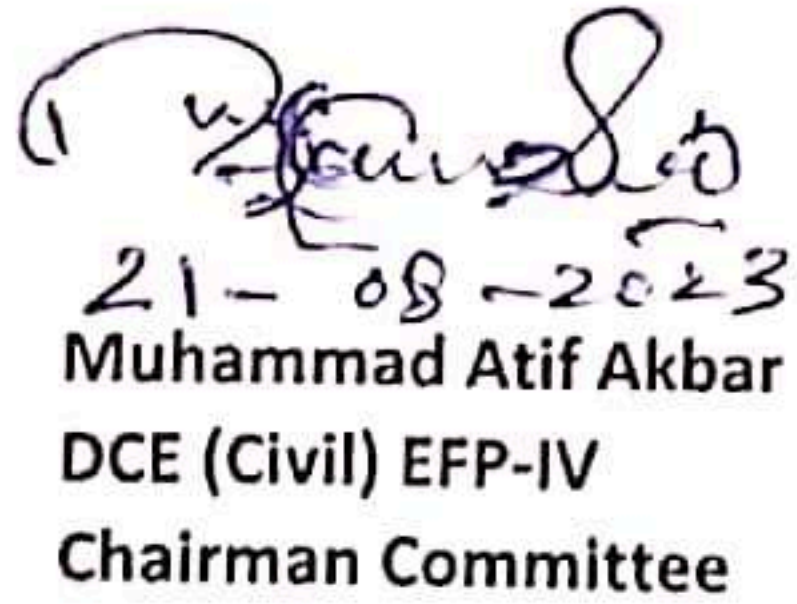 21 - 08 - 2023
Muhammad Atif Akbar
DCE (Civil) EFP-IV
Chairman Committee